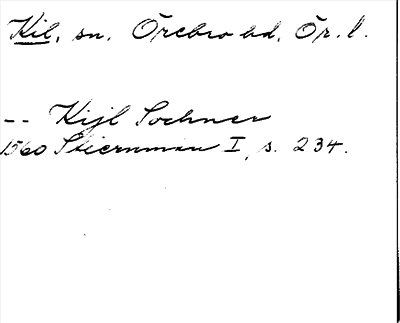 Kil, sn. Örebro hd, Ör. l.
-- Kijl Sochner
1560 Stiernman I, s. 234.